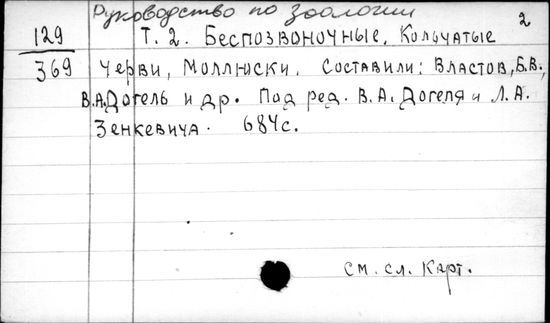 Руководство по Зоологии
2
129 Т. 2. Беспозвоночные. Кольчатые
369 Черви, Моллюски. Составили: Властов, Б.В.,
В.А.Догель и др. Под ред. В.А. Догеля и Л.А.
Зенкевича. 684с.
см. сл. Карт.